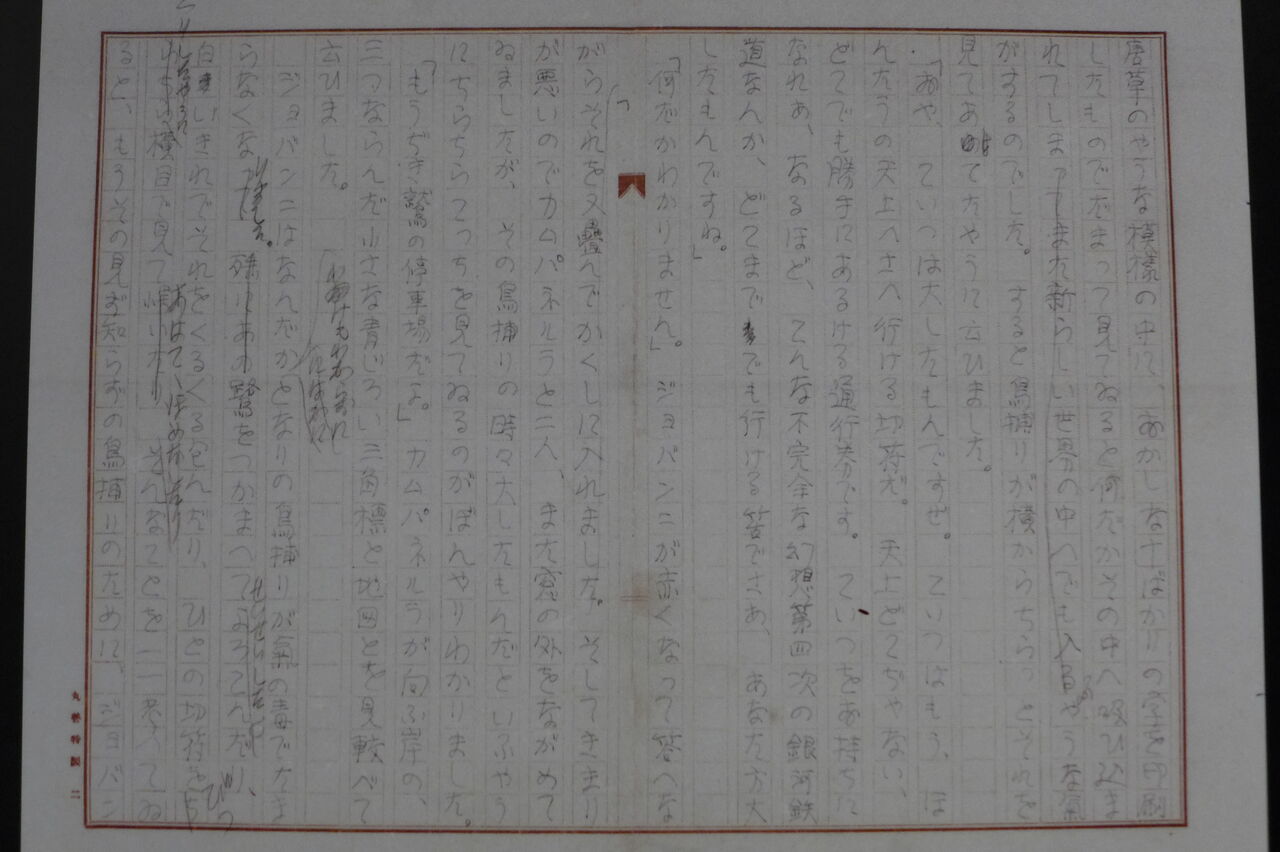 唐草のやうな模様の中に、おかしな十ばかりの字を印刷
したものでだまって見てゐると何だかその中へ吸ひ込ま
れてしまってまた新らしい世界の中へでも入るやうな氣
がするのでした。すると鳥捕りが横からちらっとそれを
見てあわてたやうに云ひました。
「おや、こいつは大したもんですぜ。こいつはもう、ほ
んたうの天上へさへ行ける切符だ。天上どこぢゃない、
どこでも勝手にあるける通行券です。こいつをお持ちに
なれあ、なるほど、こんな不完全な幻想第四次の銀河鉄
道なんか、どこまででも行ける筈でさあ、あなた方大
したもんですね。」
「何だかわかりません。」ジョバンニが赤くなって答へな
がらそれを又疊んでかくしに入れました。そしてきまり
が悪いのでカムパネルラと二人、また窓の外をながめて
ゐましたが、その鳥捕りの時々大したもんだといふやう
にちらちらこっちを見てゐるのがぼんやりわかりました。
「もうぢき鷲の停車場だよ。」カムパネルラが向ふ岸の、
三つならんだ小さな青じろい三角標と地図とを見較べて
云ひました。
わけもわからずに
にはかに
ジョバンニはなんだかとなりの鳥捕りが氣の毒でたま
らなくなりました。鷺をつかまへてせいせいしたとよろこんだり、
白いきれでそれをくるくる包んだり、ひとの切符をびっ
くりしたやうに横目で見てあわててほめだしたり、そんなことを一一考へてゐ
ると、もうその見ず知らずの鳥捕りのために、ジョバン
丸善特製 二